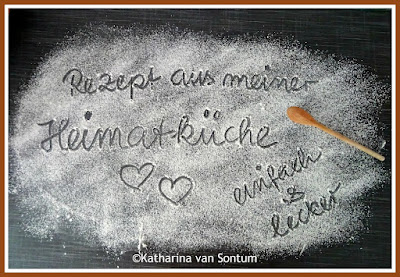 Rezept aus meiner
Heimatküche
einfach
&
lecker
©Katharina van Sontum